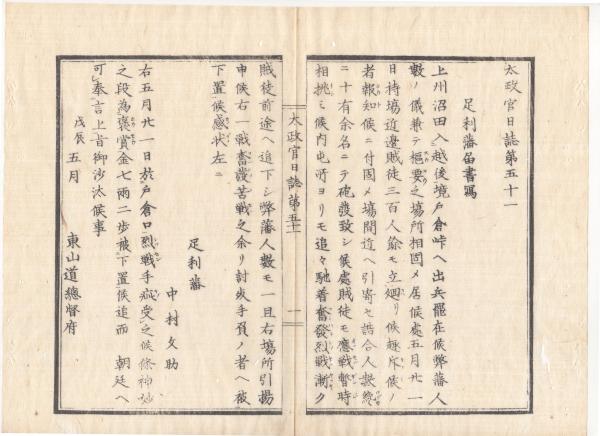 太政官日誌第五十一
足利藩届書寫
上州沼田入越後境戸倉峠へ出兵罷在候弊藩人
數ノ儀兼テ樞要之場所相固メ居候處五月廿一
日持場近邊賊徒三百人餘モ立廻リ候趣斥候ノ
者報知候ニ付固メ場間近へ引寄セ詰合人數総
二十有余名ニテ砲發致シ候處賊徒モ應戰暫時
相挑ミ候内屯所ヨリモ追々馳着奮發烈戰漸ク
太政官日誌第五十一
一
賊徒前途へ追下シ弊藩人數モ一旦右場所引揚
申候右一戰奮發苦戰之余リ討死手負ノ者へ被
下置候感狀左ニ
足利藩
中村文助
右五月廿一日於戸倉口烈戰手疵受之候條神妙
之段為褒賞金七兩二步被下置候追而 朝廷へ
可奉言上旨御沙汰候事
戊辰五月
東山道總督府